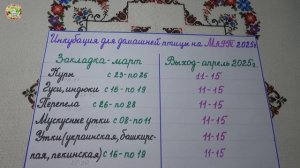 Инкубация для домашней птицы на МАРТ 2025г.
Закладка - март Выход - апрель 2025г.
Куры с 23 - по 26 11-15
Гуси, индюки с 16 - по 19 11-15
Перепела с 26 - по 28 11-15
Мускусные утки с 08 - по 11 11-15
Утки (украинская, башкирс-
кая, пекинская) с 16 - по 19 11-15